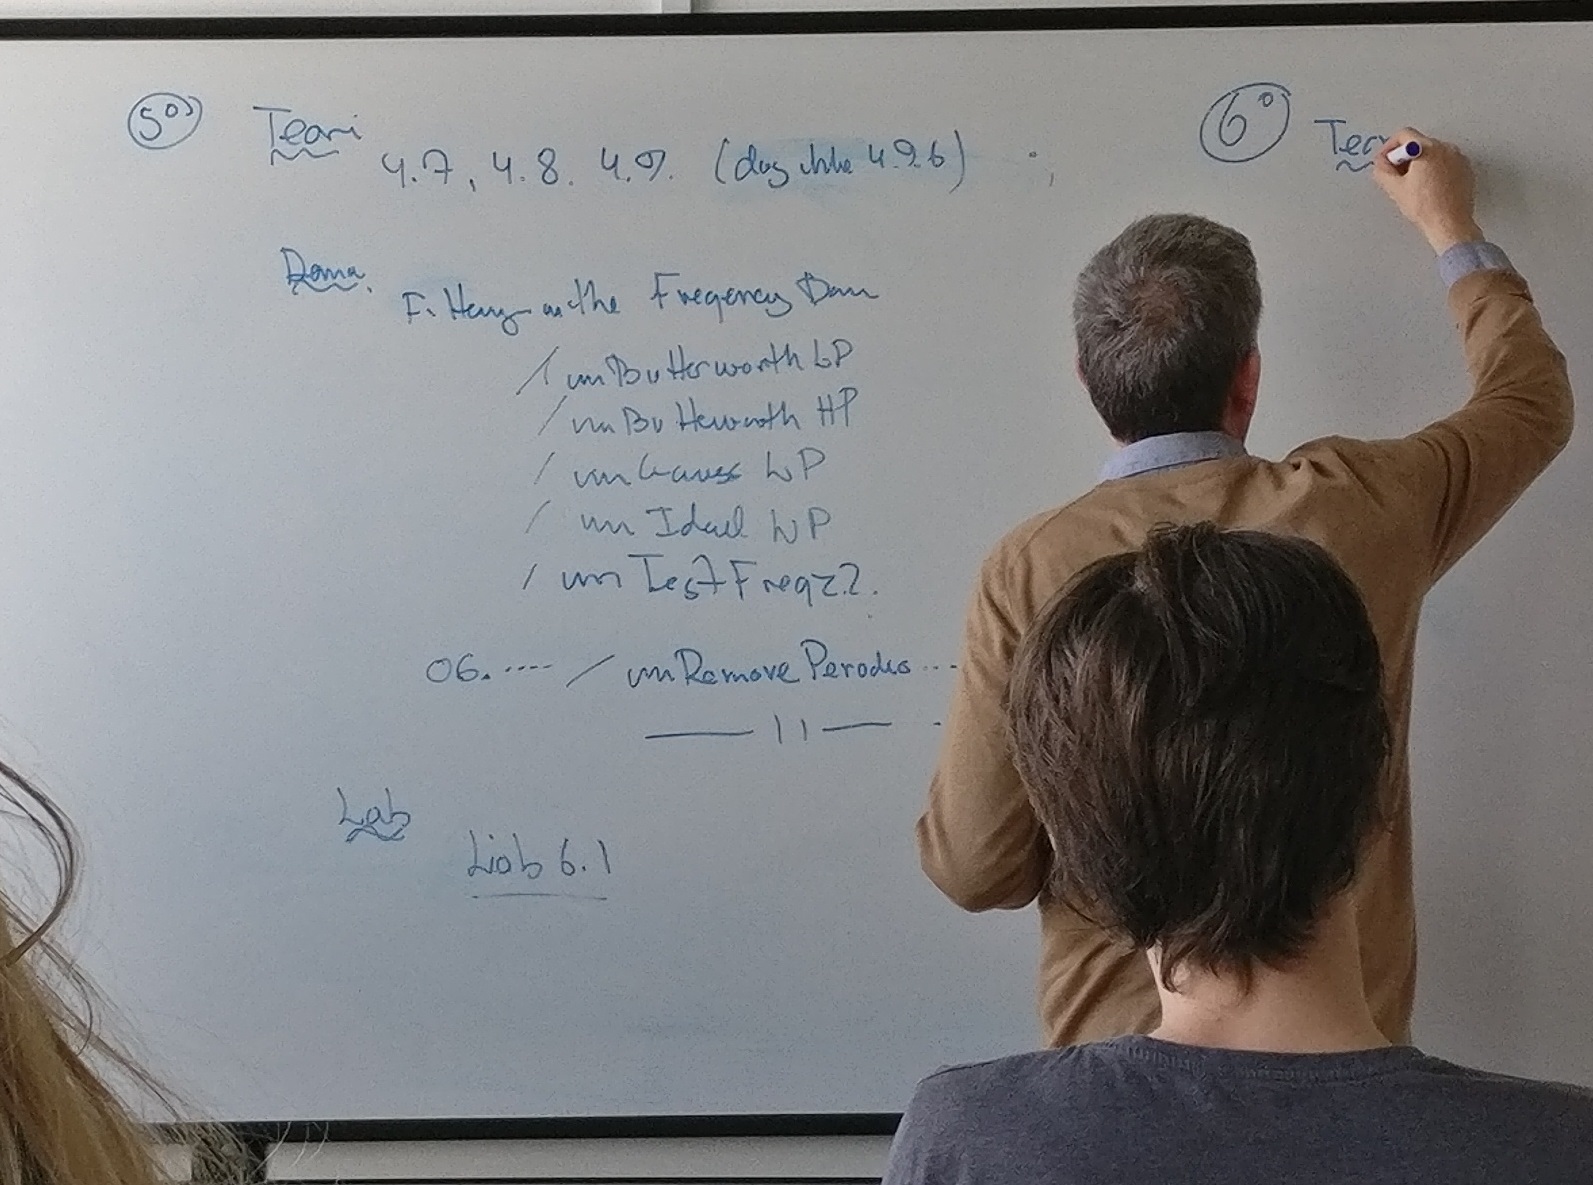 5°) Teori
4.7, 4.8. 4.9. (dog ikke 4.9.6) ;
Demo.
Filtering in the Freqency Dom
/ vmButterworth LP
/ vmButterworth HP
/ vmGauss LP
/ vm Ideal LP
/ vm TestFreqz2.
06. .... / vmRemove Perodic ...
—— 11 ——
Lab
Lab 6.1
6° Teor